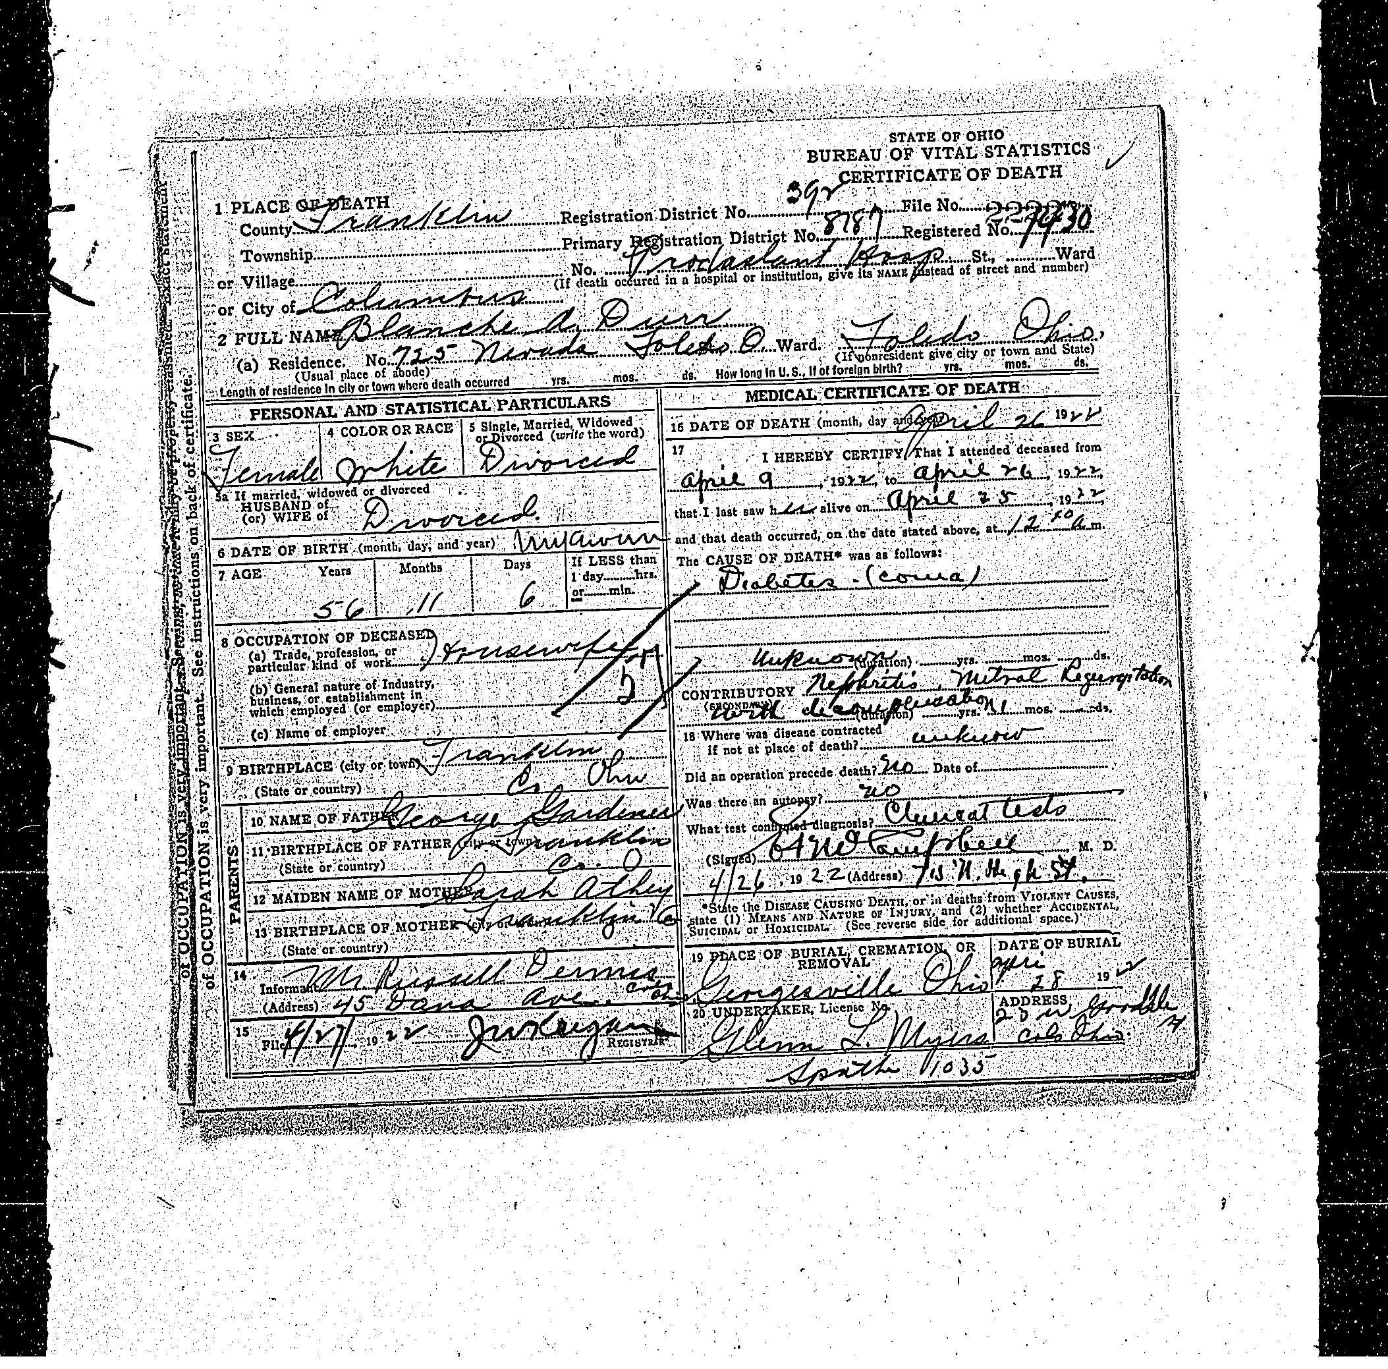 STATE OF OHIO
BUREAU OF VITAL STATISTICS
CERTIFICATE OF DEATH
1 PLACE OF DEATH
County Franklin Registration District No. 392 File No.
Township Primary Registration District No. 8187 Registered No.
or Village No. Prodastant Hosp St., Ward
(If death occured in a hospital or institution, give its NAME instead of street and number)
or City of Columbus
2 FULL NAME Blanche A. Durr
(a) Residence. No. 725 Nevada Toledo O. Ward. Toledo Ohio.
(Usual place of abode) (If nonresident give city or town and State)
Length of residence in city or town where death occurred yrs. mos. ds. How long in U. S., if of foreign birth? yrs. mos. ds.
PERSONAL AND STATISTICAL PARTICULARS
3 SEX 4 COLOR OR RACE 5 Single, Married, Widowed or Divorced (write the word)
Female White Divorced
5a If married, widowed or divorced
HUSBAND of
(or) WIFE of Divorced.
6 DATE OF BIRTH (month, day, and year) Unknown
7 AGE Years Months Days If LESS than
1 day hrs.
or min.
56 11 6
8 OCCUPATION OF DECEASED
(a) Trade, profession, or
particular kind of work Housewife
(b) General nature of Industry,
business, or establishment in
which employed (or employer)
(c) Name of employer
9 BIRTHPLACE (city or town) Franklin
(State or country) Co. Ohio
PARENTS
10 NAME OF FATHER George Gardener
11 BIRTHPLACE OF FATHER (city or town) Franklin
(State or country) Co. O
12 MAIDEN NAME OF MOTHER Sarah Athey
13 BIRTHPLACE OF MOTHER (city or town) Franklin Co
(State or country)
14
Informant Mr Russell Dennis
(Address) 45 Dana Ave.
15
Filed 4/27, 1922 REGISTRAR
MEDICAL CERTIFICATE OF DEATH
16 DATE OF DEATH (month, day and year) April 26 1922
17 I HEREBY CERTIFY, That I attended deceased from
April 9, 1922, to April 26, 1922,
that I last saw her alive on April 25, 1922
and that death occurred, on the date stated above, at 12 a m.
The CAUSE OF DEATH* was as follows:
Diabetes - (coma)
Unknown (duration) yrs. mos. ds.
CONTRIBUTORY Nephritis, Mitral Regurgitation
(SECONDARY) with
(duration) yrs. 1 mos. ds.
18 Where was disease contracted
if not at place of death? unknow
Did an operation precede death? no Date of
Was there an autopsy? no
What test confirmed diagnosis? Clinical tests
(Signed) Campbell M. D.
4/26, 1922 (Address) N. High St.
*State the DISEASE CAUSING DEATH, or in deaths from VIOLENT CAUSES,
state (1) MEANS AND NATURE OF INJURY, and (2) whether ACCIDENTAL,
SUICIDAL or HOMICIDAL. (See reverse side for additional space.)
19 PLACE OF BURIAL, CREMATION, OR REMOVAL DATE OF BURIAL
Georgesville Ohio 28 192
20 UNDERTAKER, License No. ADDRESS
Glenn L. Myers Cols Ohio.
1035
of OCCUPATION is very important. See instructions on back of certificate.